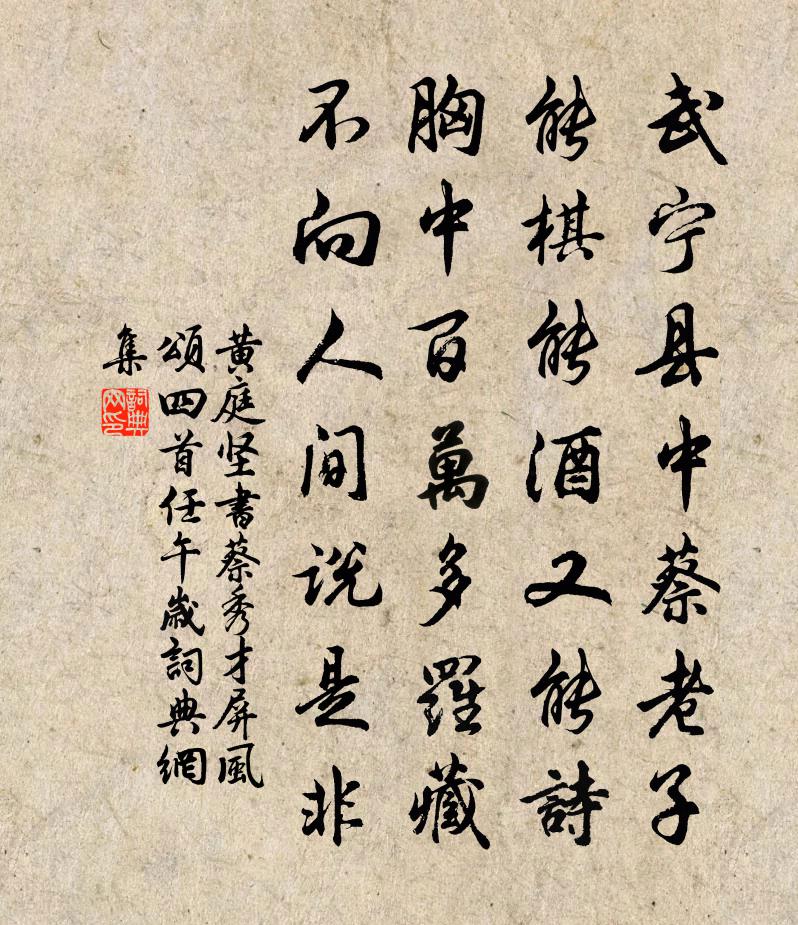 武宁县中蔡老子
能棋能酒又能詩
胸中百萬多羅藏
不向人间说是非
黄庭坚書蔡秀才屏風
頌四首任午歲詞典網
集
詞典
网印